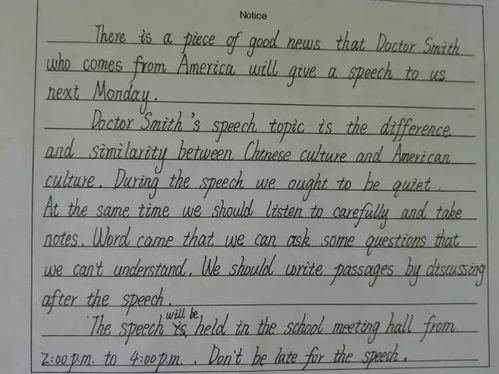 Notice
There is a piece of good news that Doctor Smith
who comes from America will give a speech to us
next Monday.
Doctor Smith's speech topic is the difference
and similarity between Chinese culture and American
culture. During the speech we ought to be quiet.
At the same time we should listen to carefully and take
notes. Word came that we can ask some questions that
we can't understand. We should write passages by discussing
after the speech.
The speech will be held in the school meeting hall from
2:00 p.m. to 4:00 p.m. . Don't be late for the speech.